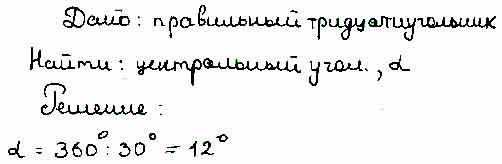 Дано: правильный тридцатиугольник
Найти: центральный угол., α
Решение:
α = 360° : 30° = 12°